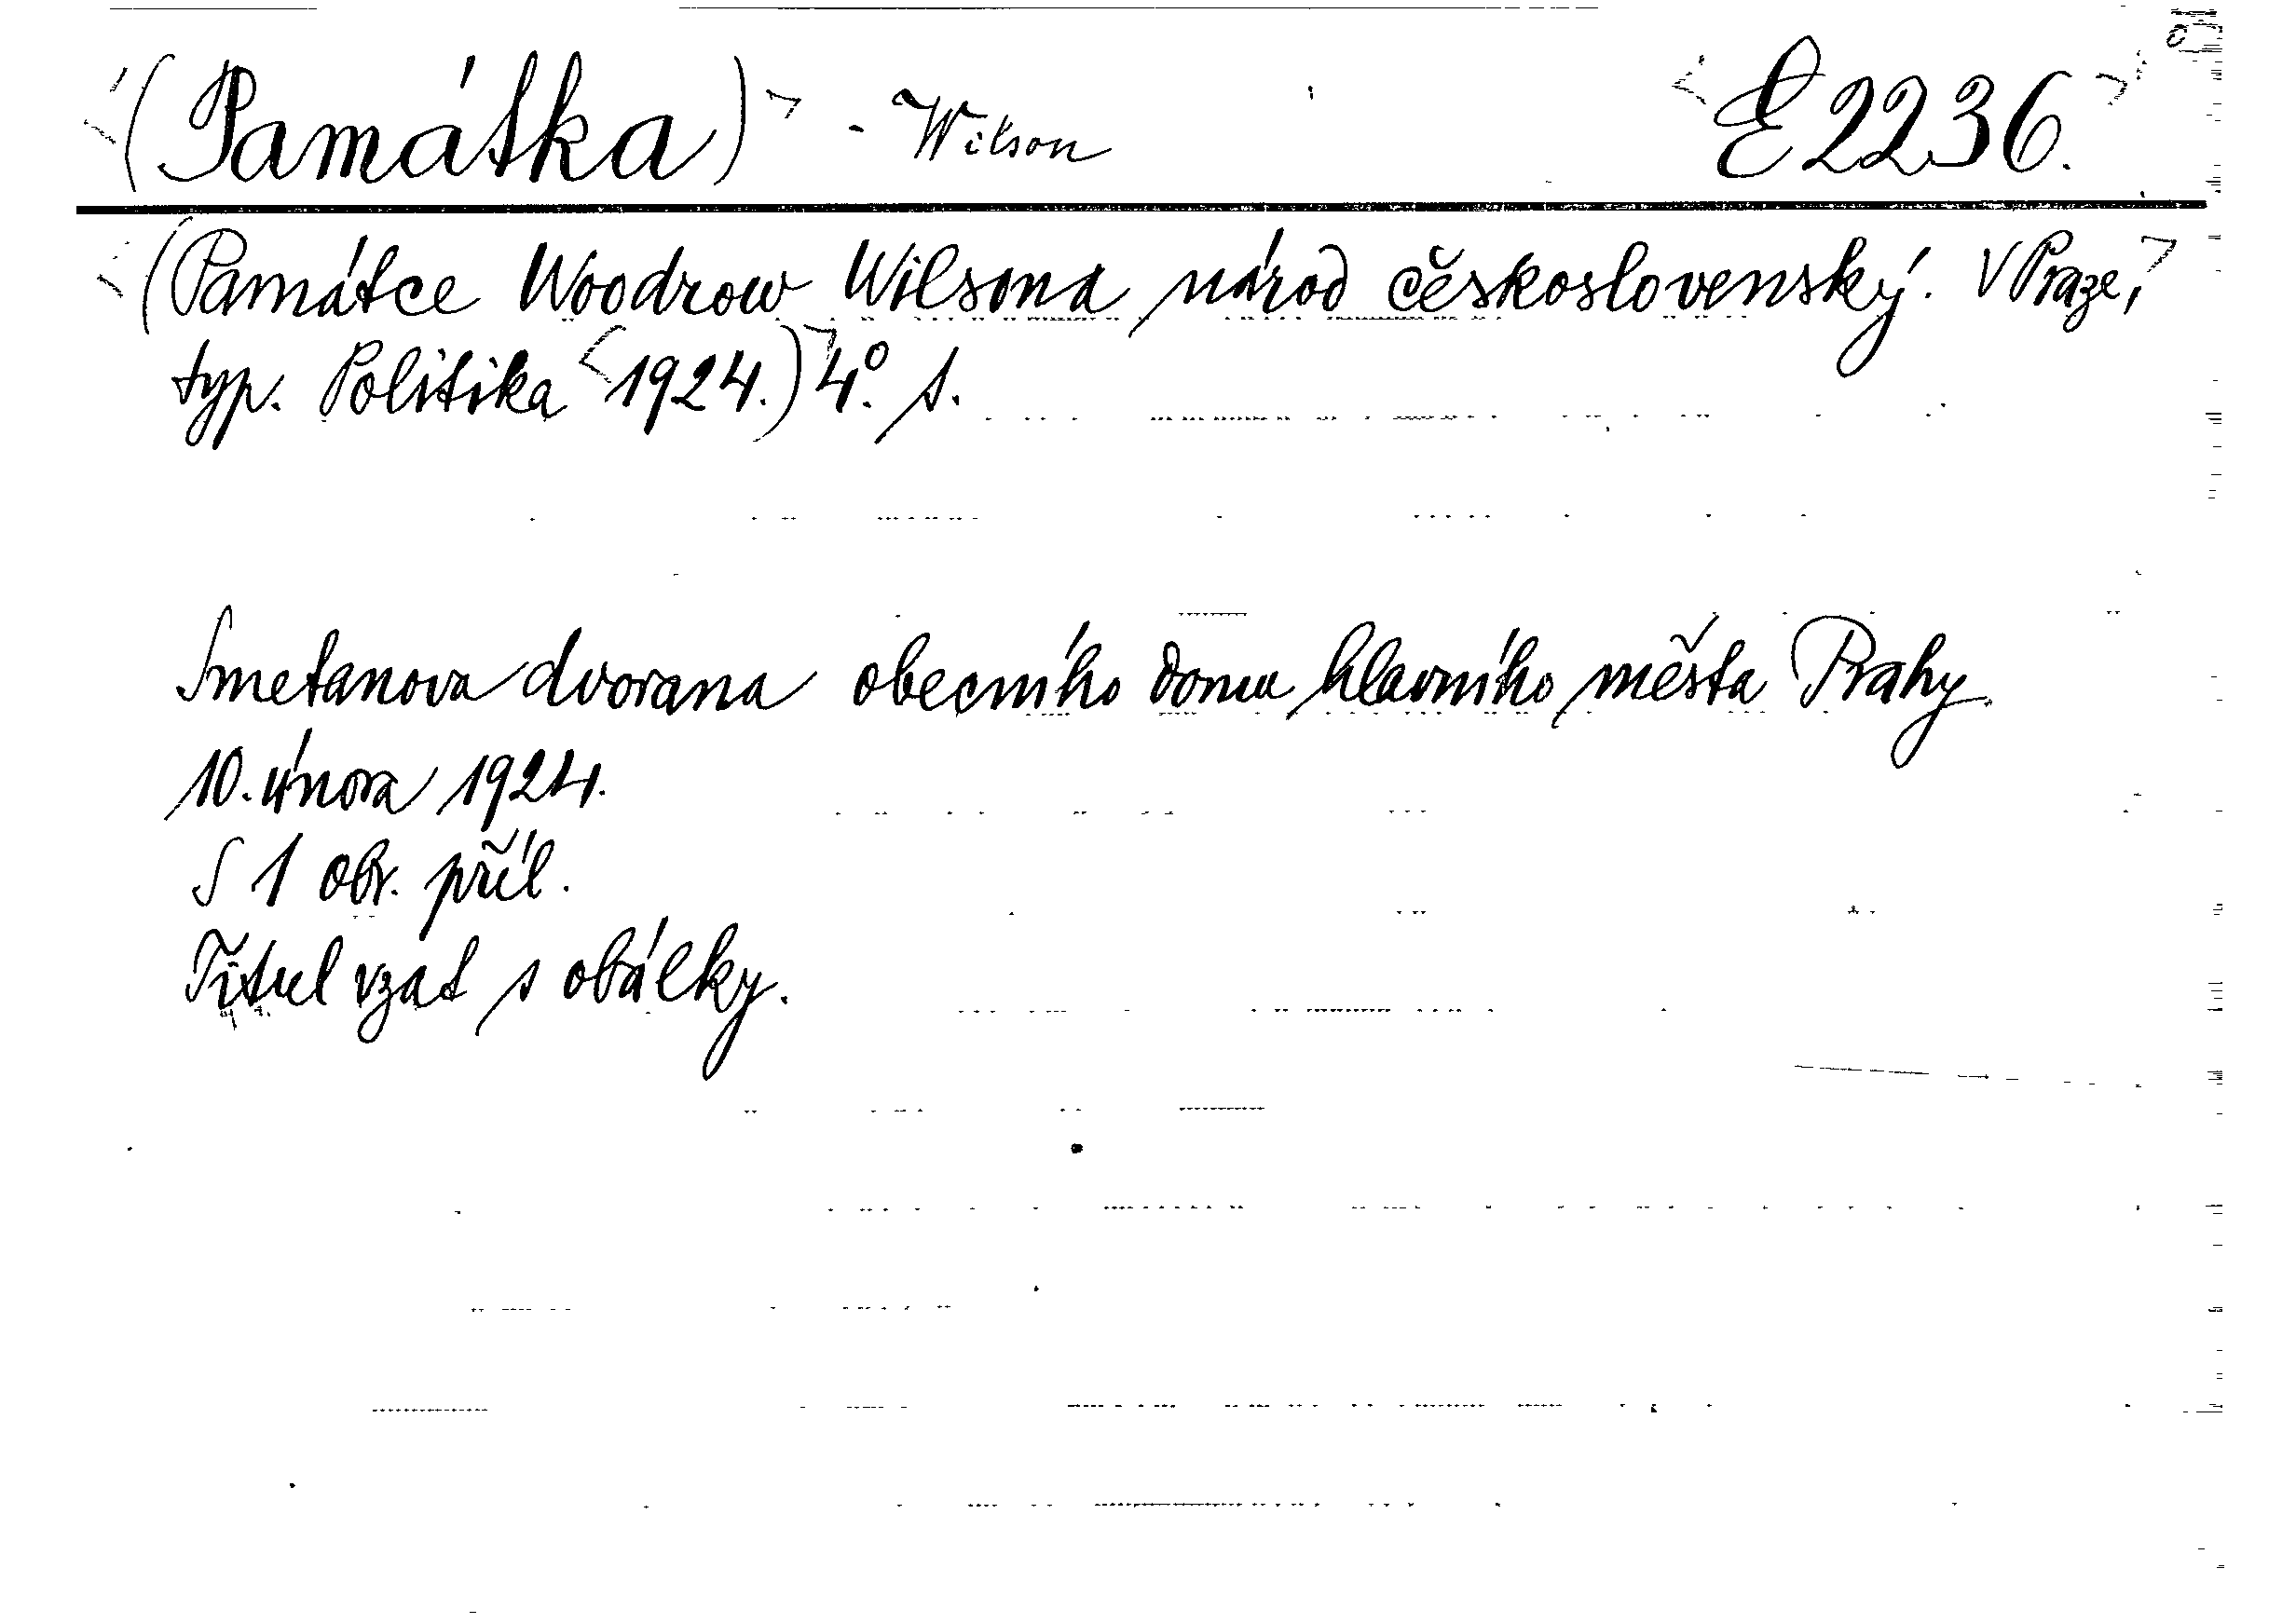 (Památka) - Wilson E 2236.
(Památce Woodrow Wilsona národ československý. V Praze,
typ. Politika 1924.) 4° s.
Smetanova dvorana obecního domu hlavního města Prahy
10. února 1924.
S 1 obr. příl.
Titul vzat s obálky.